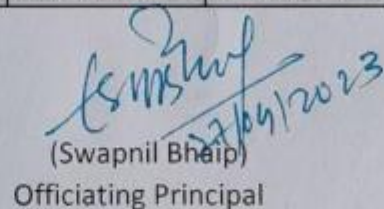 27/04/2023
(Swapnil Bhaip)
Officiating Principal